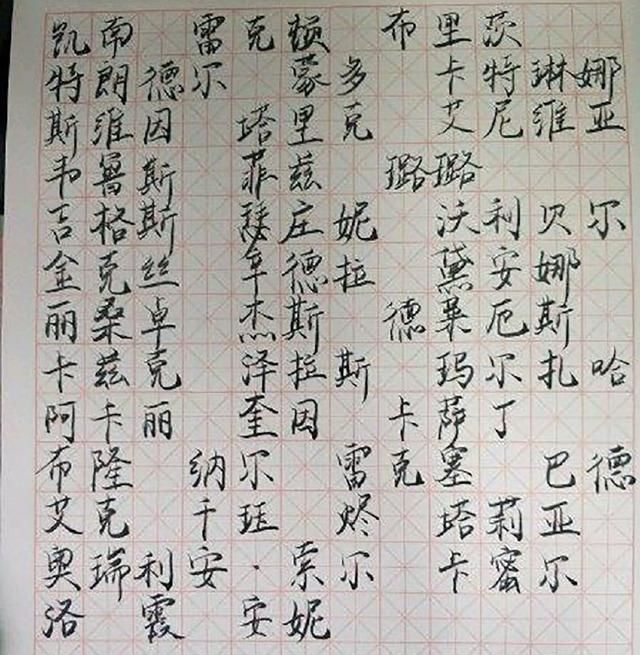 凯南 雷克顿 布里茨
特朗德尔 蒙多 卡特琳娜
斯维因 塔里克 艾尼维亚
韦鲁斯 菲兹 璐璐
吉格斯 瑟庄妮 沃利贝尔
金克丝 辛德拉 黛安娜
丽桑卓 杰斯 德莱厄斯
卡兹克 泽拉斯 玛尔扎哈
阿卡丽 奎因 卡萨丁
布隆 纳尔 雷克塞 巴德
艾克 千珏 烬 塔莉亚
奥瑞利安·索尔 卡蜜尔
洛 霞 安妮